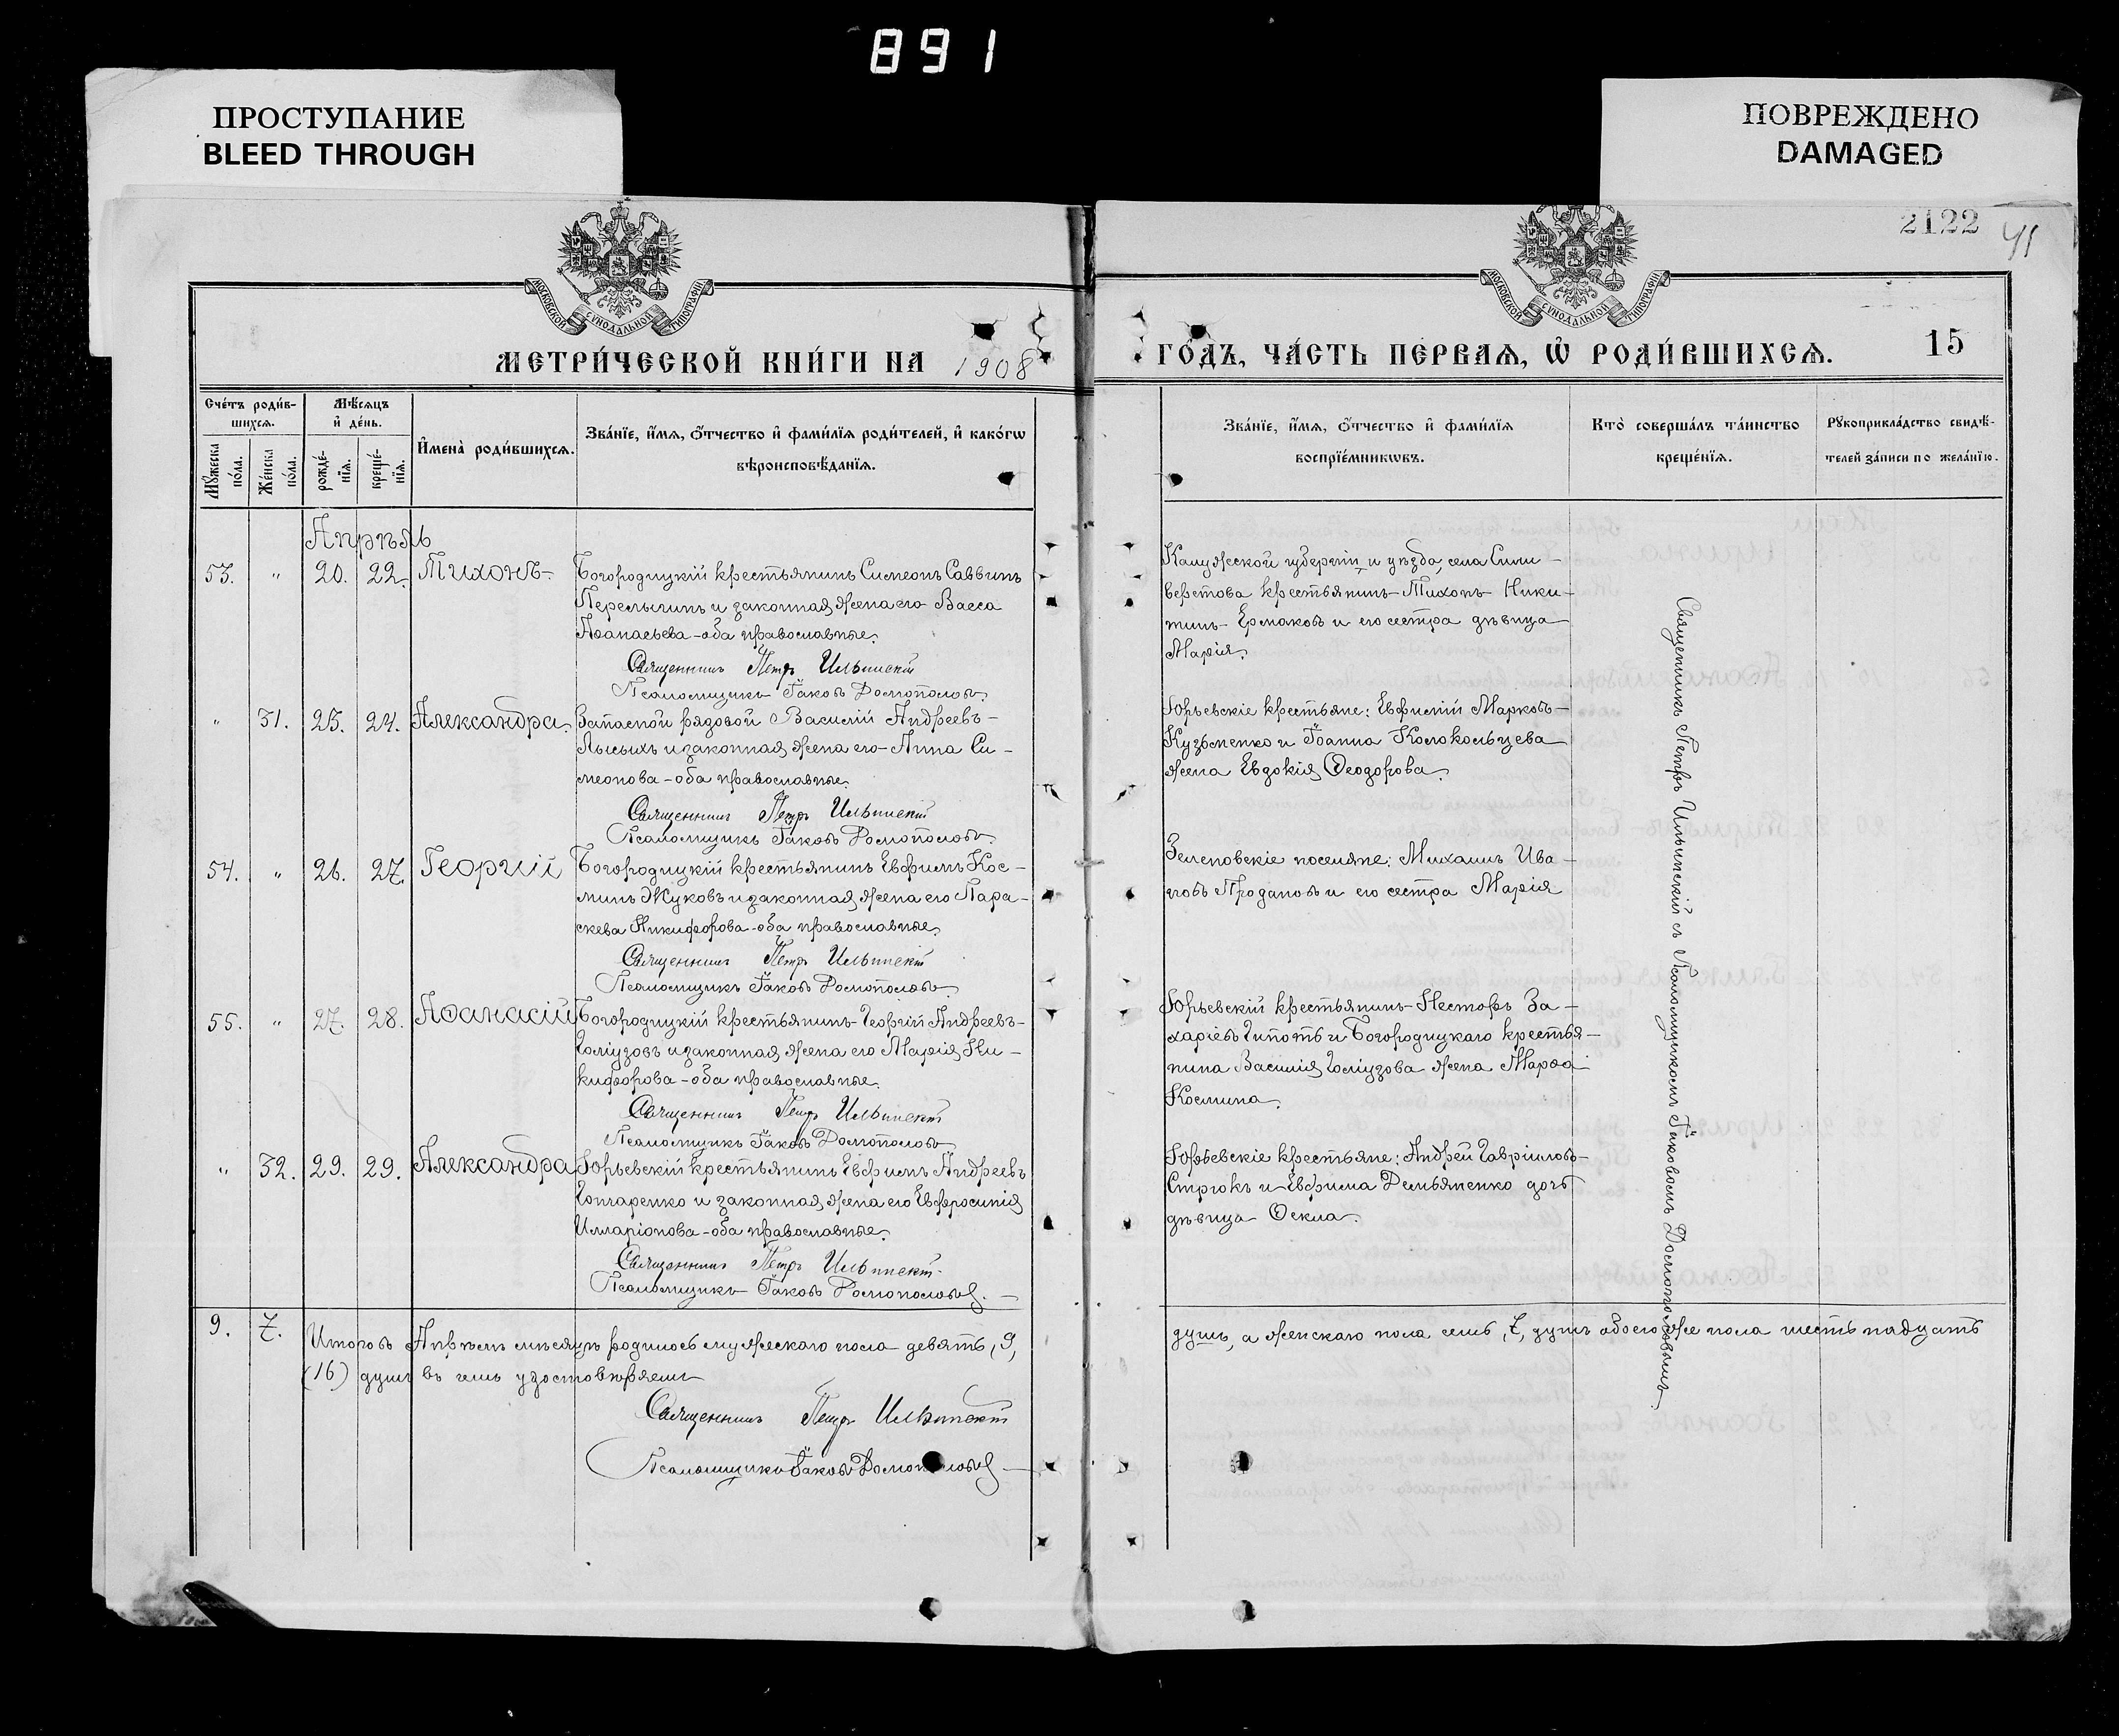 891
ПРОСТУПАНИЕ
BLEED THROUGH
ПОВРЕЖДЕНО
DAMAGED
2122
41
МОСКОВСКОЙ СѴНОДАЛЬНОЙ ТИПОГРАФІИ
МОСКОВСКОЙ СѴНОДАЛЬНОЙ ТИПОГРАФІИ
МЕТРИ́ЧЕСКОЙ КНИ́ГИ НА 1908
ГО́ДЪ, ЧА́СТЬ ПЕ́РВАѦ, Ѡ҆ РОДИ́ВШИХСѦ.
15
Сче́тъ роди́в-
шихсѧ.
Мѣ́сѧцъ
и҆ де́нь.
Мꙋ́жеска
по́ла.
Же́нска
по́ла.
рожде́-
нїѧ.
креще́-
нїѧ.
И҆мена̀ роди́вшихсѧ.
Зва́нїе, и҆́мѧ, ѻ҆́тчество и҆ фами́лїѧ роди́телей, и҆ како́гѡ
вѣроисповѣ́данїѧ.
Зва́нїе, и҆́мѧ, ѻ҆́тчество и҆ фами́лїѧ
воспрїе́мникѡвъ.
Кто̀ соверша́лъ та́инство
креще́нїѧ.
Рꙋкоприкла́дство свидѣ́-
телей за́писи по жела́нїю.
Апрѣль
53. " 20. 22. Тихонъ.
Богородицкій крестьянинъ Симеонъ Саввинъ
Перелыгинъ и законная жена его Васса
Аѳанасьева - оба православные.
Священникъ Петръ Ильинскій
Псаломщикъ Іаковъ Домополовъ.
Калужской губерніи и уѣзда, села Сили-
верстова крестьянинъ Тихонъ Ники-
тинъ Ермаковъ и его сестра дѣвица
Марія.
" 31. 23. 24. Александра.
Запасной рядовой Василій Андреевъ
Лысыхъ и законная жена его Анна Си-
меонова - оба православные.
Священникъ Петръ Ильинскій
Псаломщикъ Іаковъ Домополовъ.
Юрьевскіе крестьяне: Евфимій Марковъ
Кузьменко и Іоанна Колокольцева
жена Евдокія Ѳеодорова.
54. " 26. 27. Георгій
Богородицкій крестьянинъ Евфимъ Кос-
минъ Жуковъ и законная жена его Пара-
скева Никифорова - оба православные.
Священникъ Петръ Ильинскій
Псаломщикъ Іаковъ Домополовъ.
Зеленовскіе поселяне: Михаилъ Ива-
новъ Продановъ и его сестра Марія
55. " 27. 28. Аѳанасій
Богородицкій крестьянинъ Георгій Андреевъ
и законная жена его Марія Ни-
кифорова - оба православные.
Священникъ Петръ Ильинскій
Псаломщикъ Іаковъ Домополовъ
Юрьевскій крестьянинъ Несторъ За-
харіевъ и Богородицкаго крестья-
нина Василія жена Марѳа
Космина.
" 32. 29. 29. Александра
Юрьевскій крестьянинъ Евфимъ Андреевъ
Гончаренко и законная жена его Евфросинія
Илларіонова - оба православные.
Священникъ Петръ Ильинскій
Псаломщикъ Іаковъ Домополовъ.
Юрьевскіе крестьяне: Андрей Гавріиловъ
Стрюкъ и Евфима Демьяненко дочь
дѣвица Ѳекла.
Священникъ Петръ Ильинскій съ Псаломщикомъ Іаковомъ Домополовымъ
9. 7.
Итого въ Апрѣлѣ мѣсяцѣ родилось мужескаго пола девять, 9,
душъ, а женскаго пола семь, 7, душъ обоего же пола шестьнадцать
(16) душъ въ чемъ удостовѣряемъ
Священникъ Петръ Ильинскій
Псаломщикъ Іаковъ Домополовъ